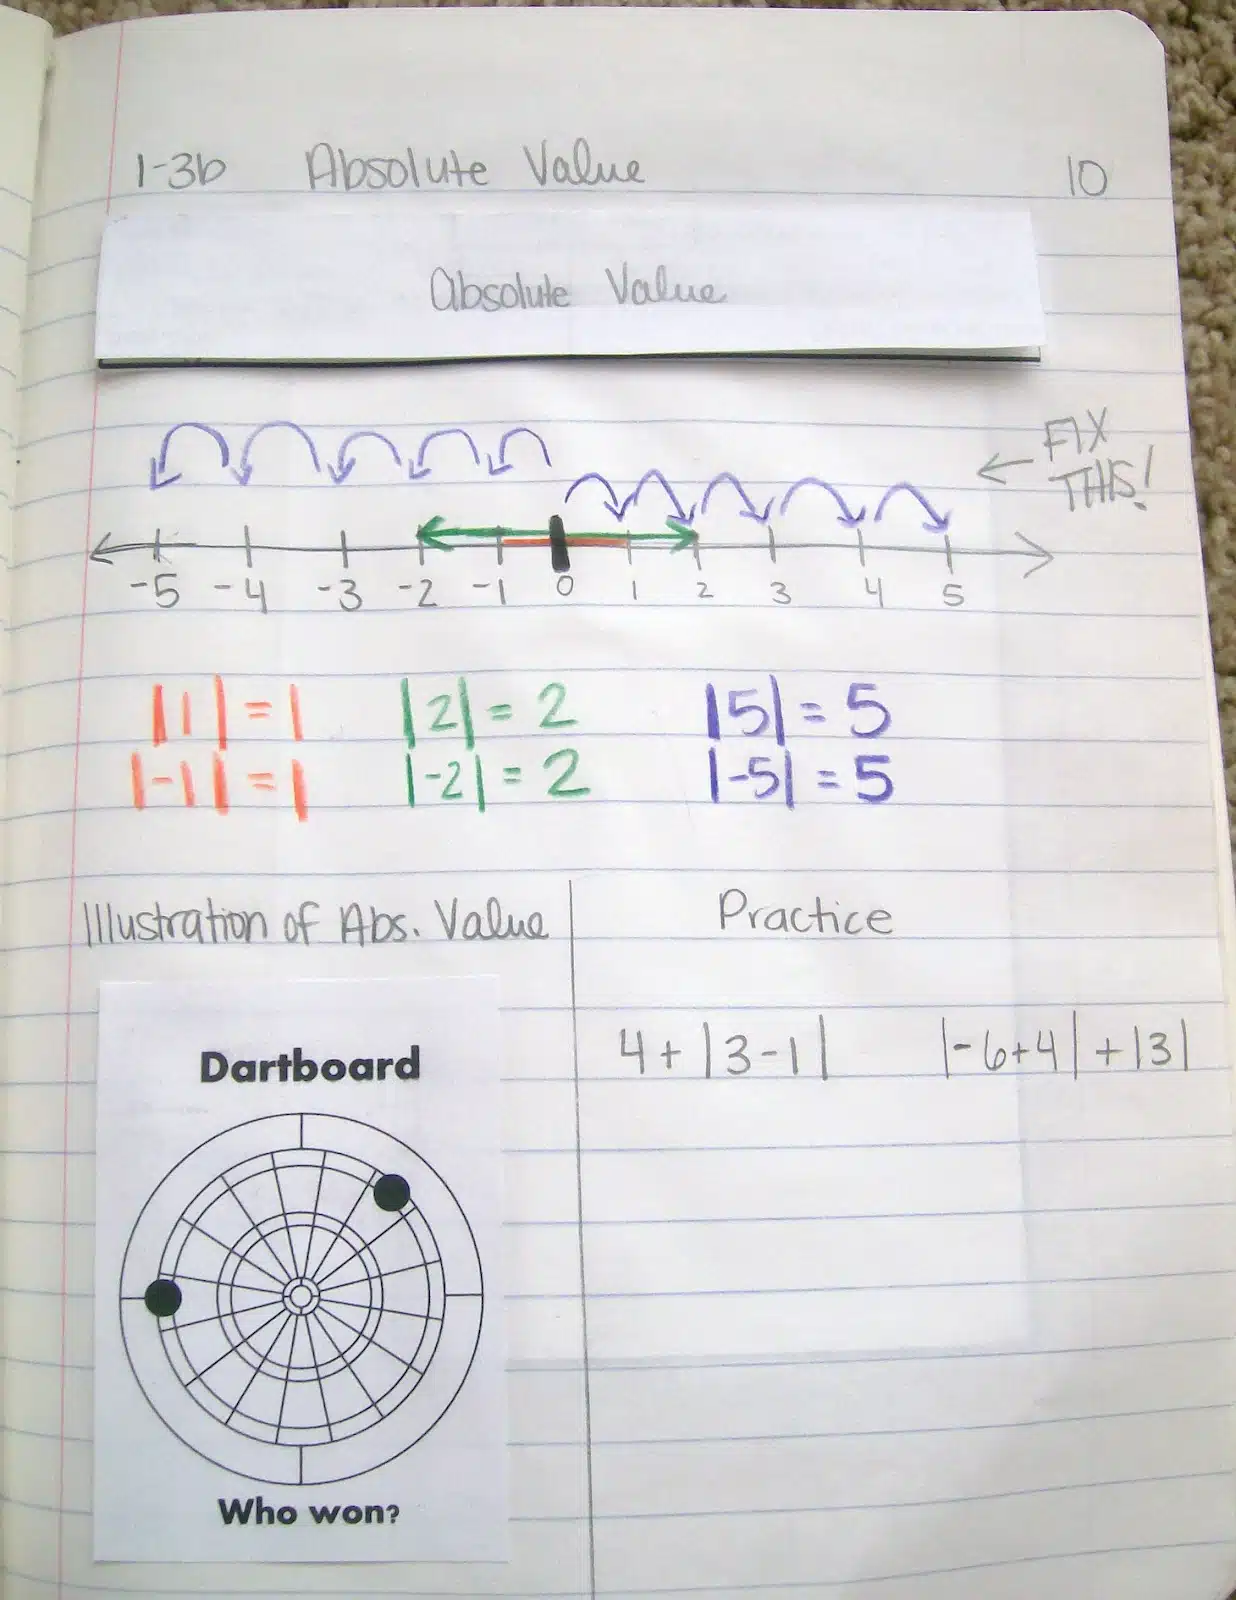 1-3b Absolute Value 10
Absolute Value
FIX
THIS!
-5 -4 -3 -2 -1 0 1 2 3 4 5
|1| = 1 |2| = 2 |5| = 5
|-1| = 1 |-2| = 2 |-5| = 5
Illustration of Abs. Value
Dartboard
Who won?
Practice
4 + |3 - 1| |-6+4| + |3|